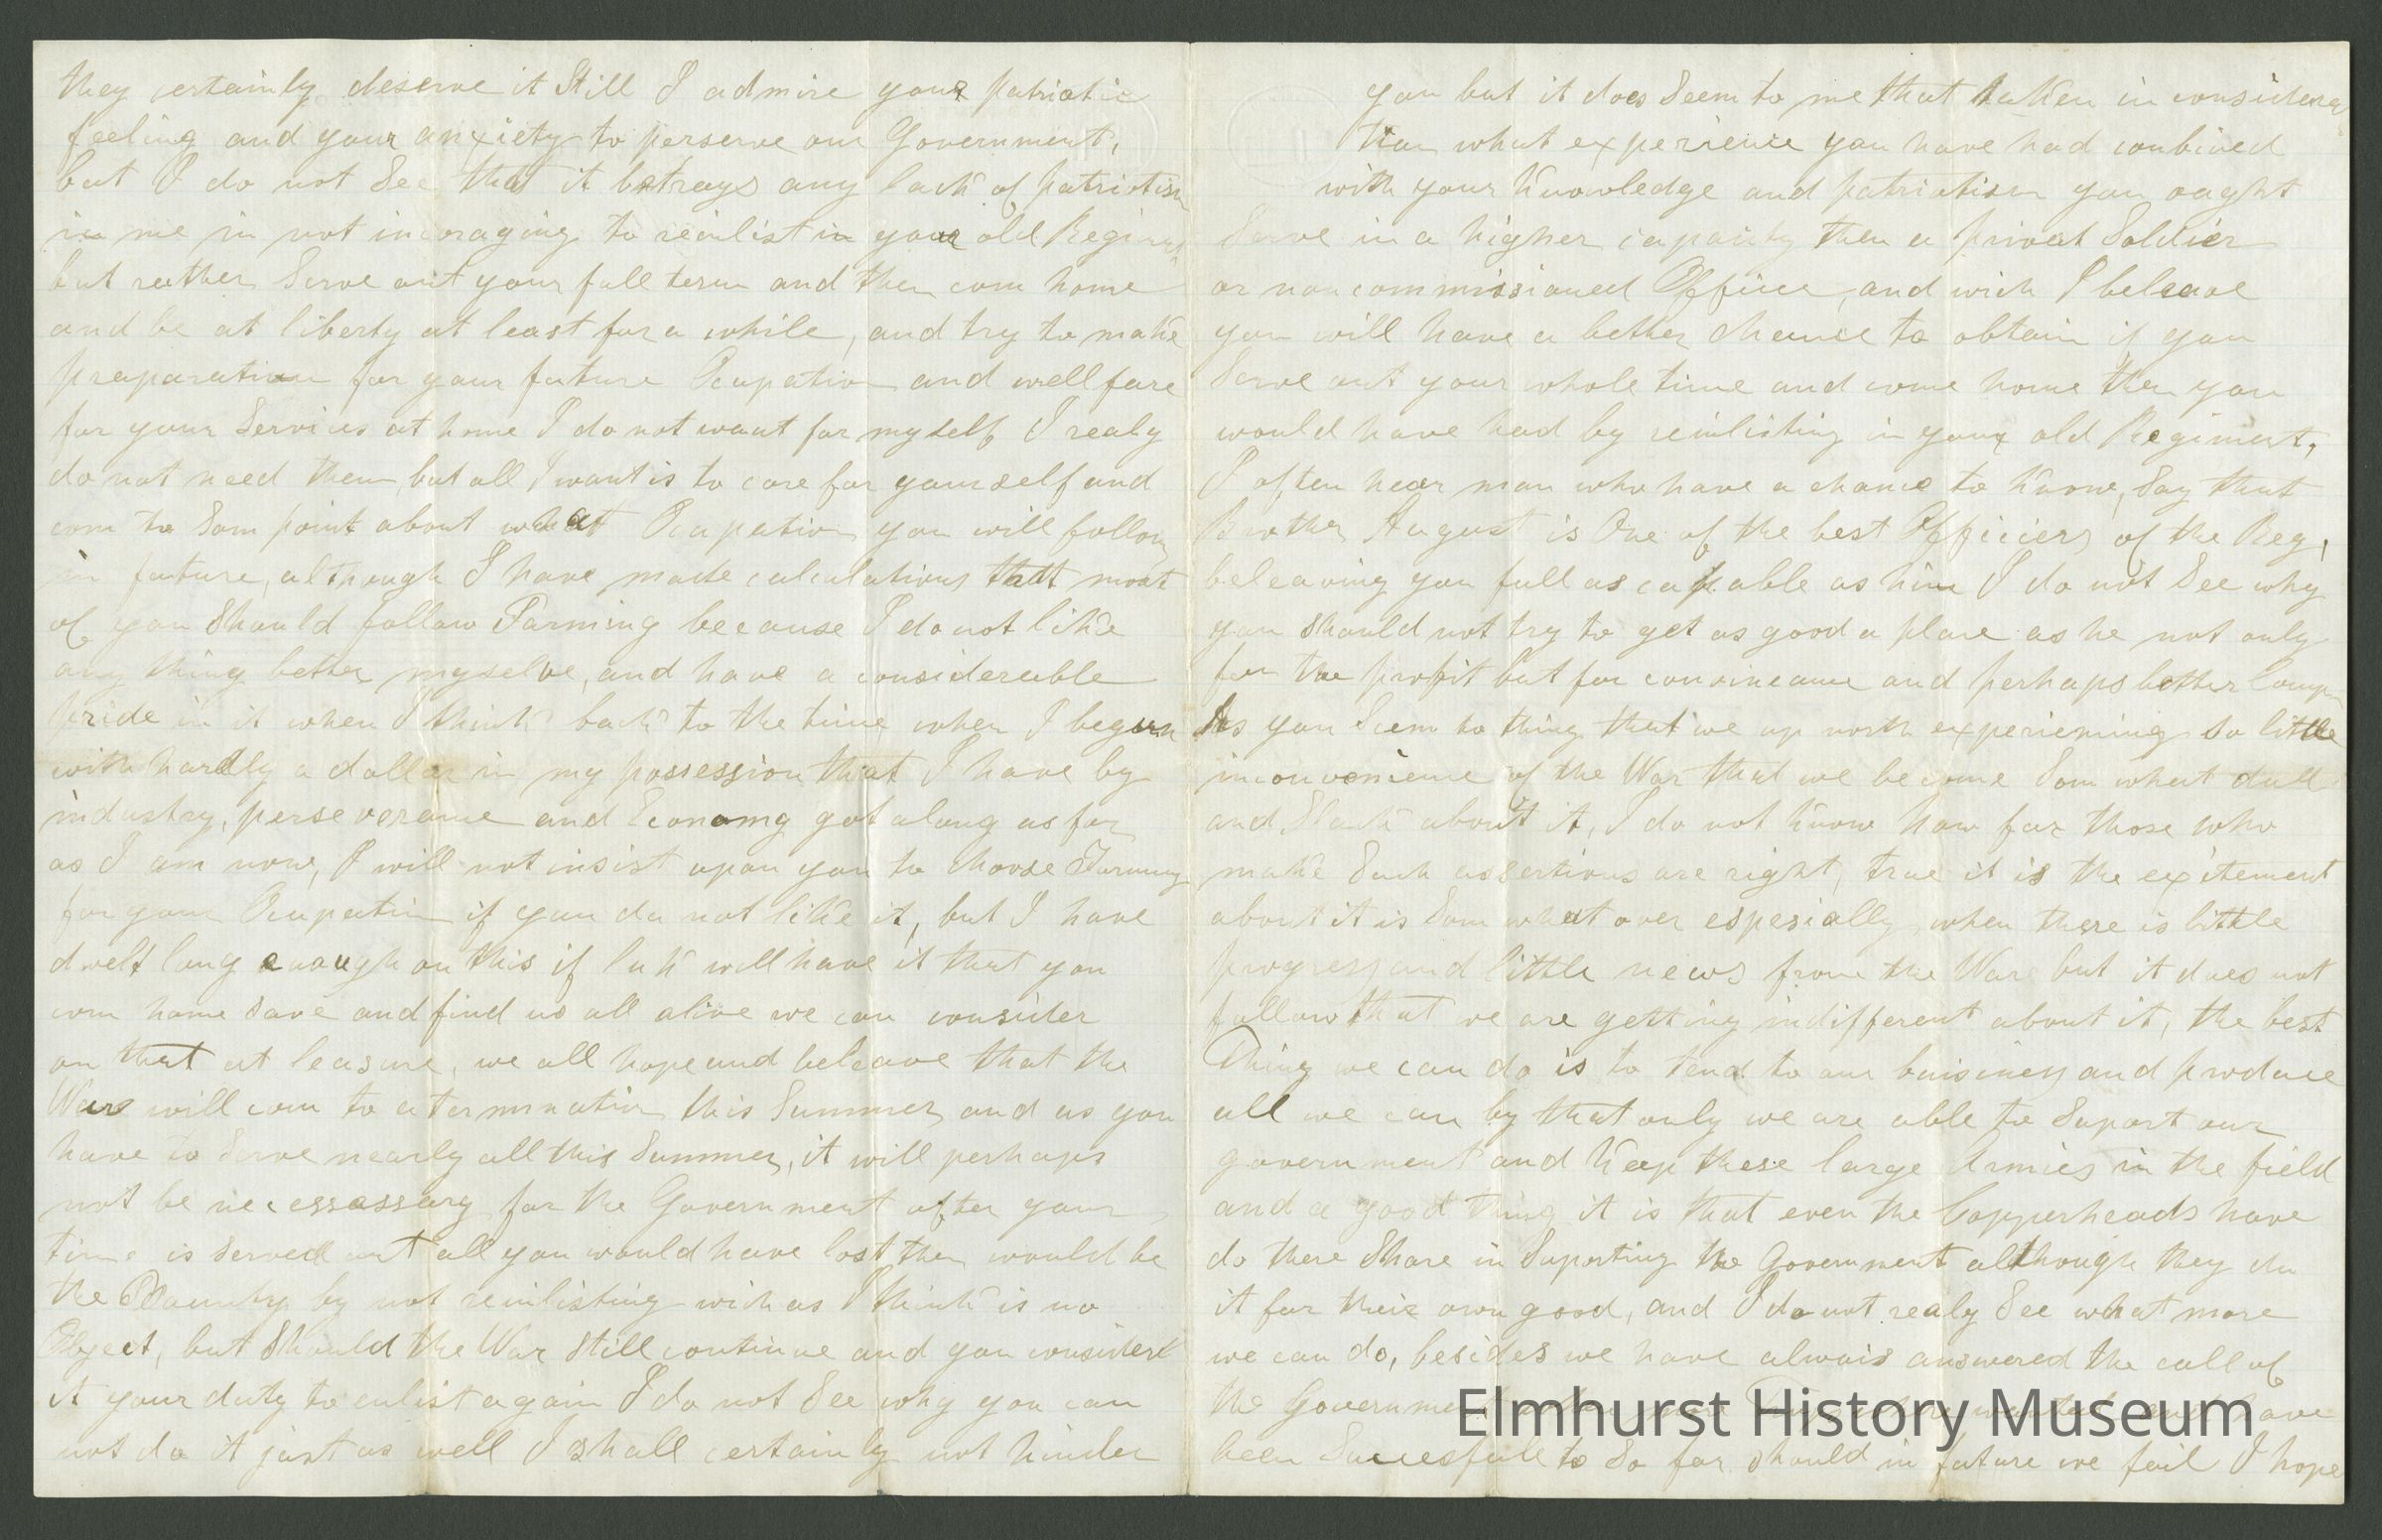 they certainly deserve it Still I admire your patriotic
feeling and your anxiety to perserve our Government,
but I do not See that it betrays any lack of patriotism
in me in not incoraging to reinlist in your old Regiment
but rather Serve out your full term and then com home
and be at liberty at least for a while, and try to make
preparation for your future Ocupation and wellfare
for your Servises at home I do not want for myself I realy
do not need them, but all I want is to care for yourself and
com to Som point about what Ocupation you will follow
in future, although I have made calculations that most
of you Should follow Farming because I do not like
any thing better myselve, and have a considereable
pride in it when I think back to the time when I begun
with hardly a dollar in my possession that I have by
industry, perseverance and Economy got along as far
as I am now, I will not insist upon you to choose Farming
for your Ocupation if you do not like it, but I have
dwelt long enough on this if luck will have it that you
com home save and find us all alive we can consider
on that at leasure, we all hope and beleave that the
War will com to a termination this Summer, and as you
have to Serve nearly all this Summer, it will perhaps
not be necessassary for the Government after your
time is served out all you would have lost then would be
the Bounty by not reinlisting wich as I think is no
Object, but Should the War Still continue and you considert
it your duty to enlist again I do not See why you can
not do it just as well I shall certainly not hinder
you but it does Seem to me that taken in considera
tion what experience you have had conbined
with your Knowledge and patriotism you ought
Serve in a higher capacity then a privat Soldier
or noncommissioned Officer, and wich I beleave
you will have a better chance to obtain if you
Serve out your whole time and come home then you
would have had by reinlisting in your old Regiment,
I often hear man who have a chance to Know, Say that
Brother August is One of the best Officiers of the Reg,
beleaving you full as capable as him I do not See why
you should not try to get as good a place as he not only
for the profit but for convineance and perhaps better
As you Seem to thing that we up north experiencing so little
inconvenience of the War that we become Som what dull
and Slack about it, I do not Know how far those who
make Such assertions are right, true it is the exitement
about it is Som what over espesially when there is little
progress and little news from the War but it does not
follow that we are getting indifferent about it, the best
Thing we can do is to tend to our buisiness and produce
all we can by that only we are able to Suport our
government and Keep these large Armies in the field
and a good thing it is that even the Copperheads have
do there Share in Suporting the Government although they do
it for their own good, and I do not realy See what more
we can do, besides we have alwais answered the call of
the Government have
been Succesfull to So far should in future we fail I hope
Elmhurst History Museum